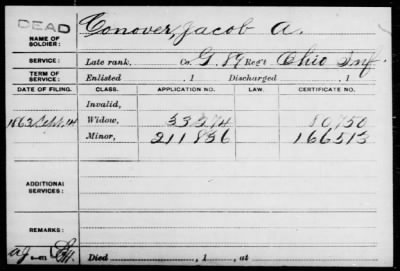 DEAD
NAME OF SOLDIER: Conover, Jacob A.
SERVICE: Late rank, Co. G. 89 Reg't Ohio Inf.
TERM OF SERVICE: Enlisted , 1 Discharged , 1
DATE OF FILING. CLASS. APPLICATION NO. LAW. CERTIFICATE NO.
Invalid,
1863 Sept. 14 Widow, 33274 80750
Minor, 211836 166513
ADDITIONAL SERVICES:
REMARKS:
Died , 1 , at